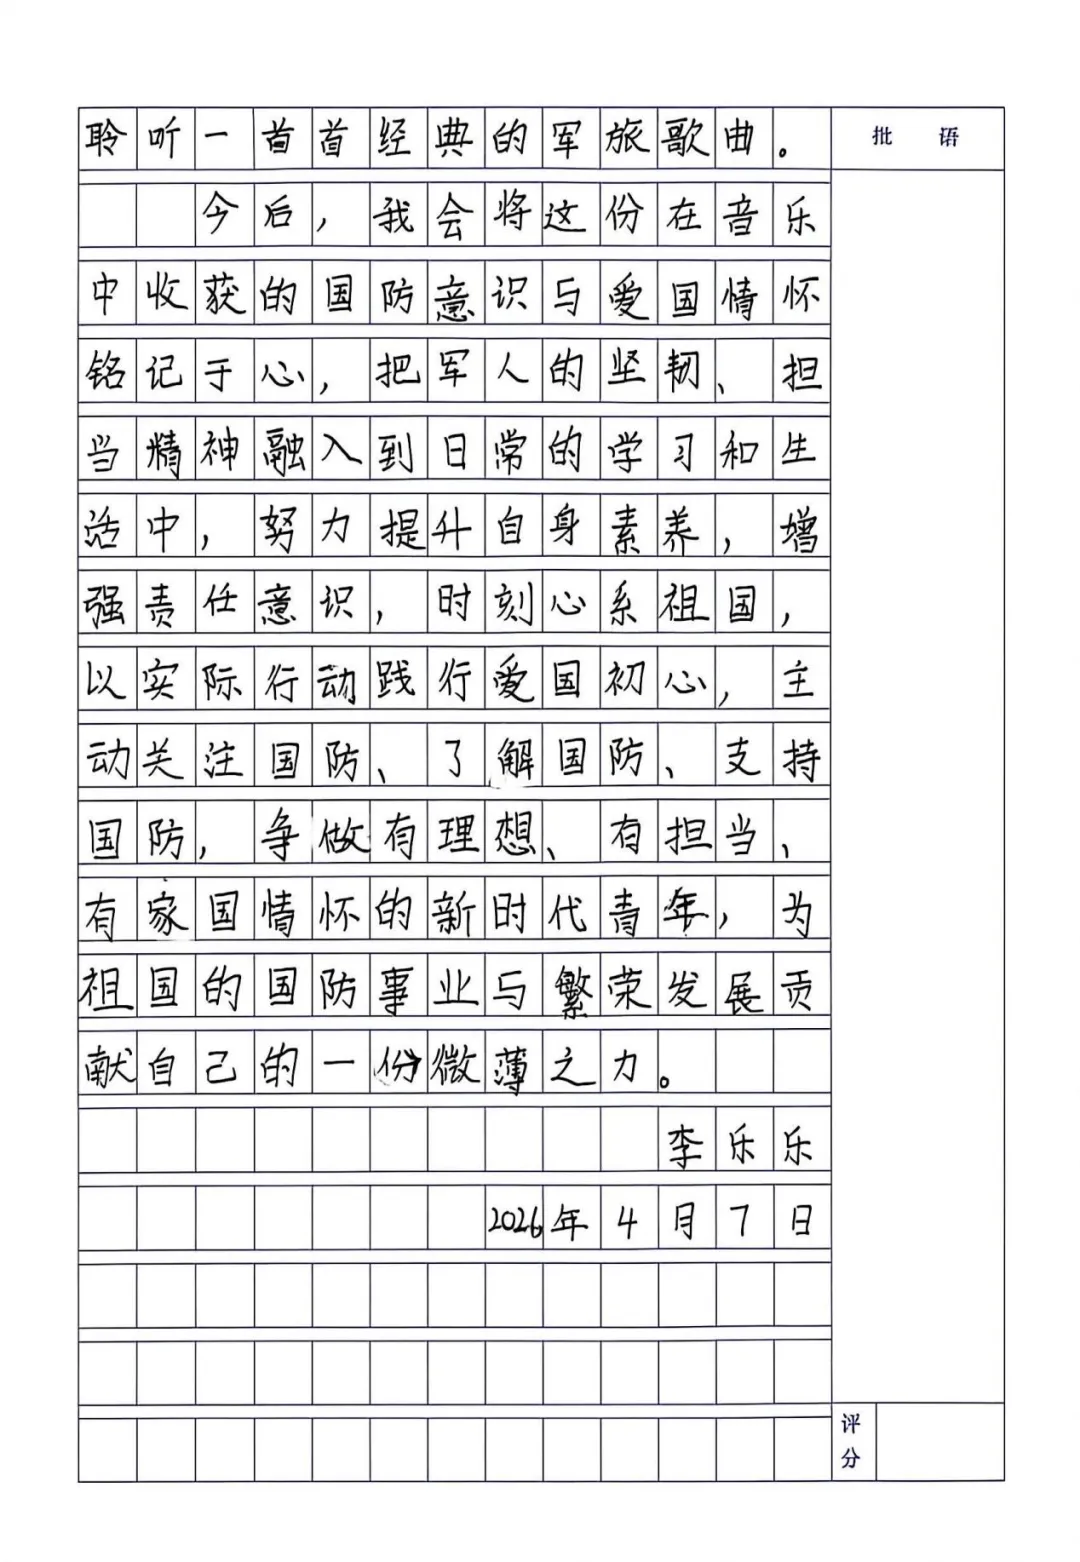 聆听一首首经典的军旅歌曲。
批 语
今后，我会将这份在音乐
中收获的国防意识与爱国情怀
铭记于心，把军人的坚韧、担
当精神融入到日常的学习和生
活中，努力提升自身素养，增
强责任意识，时刻心系祖国，
以实际行动践行爱国初心，主
动关注国防、了解国防、支持
国防，争做有理想、有担当、
有家国情怀的新时代青年，为
祖国的国防事业与繁荣发展贡
献自己的一份微薄之力。
李乐乐
2026年4月7日
评分